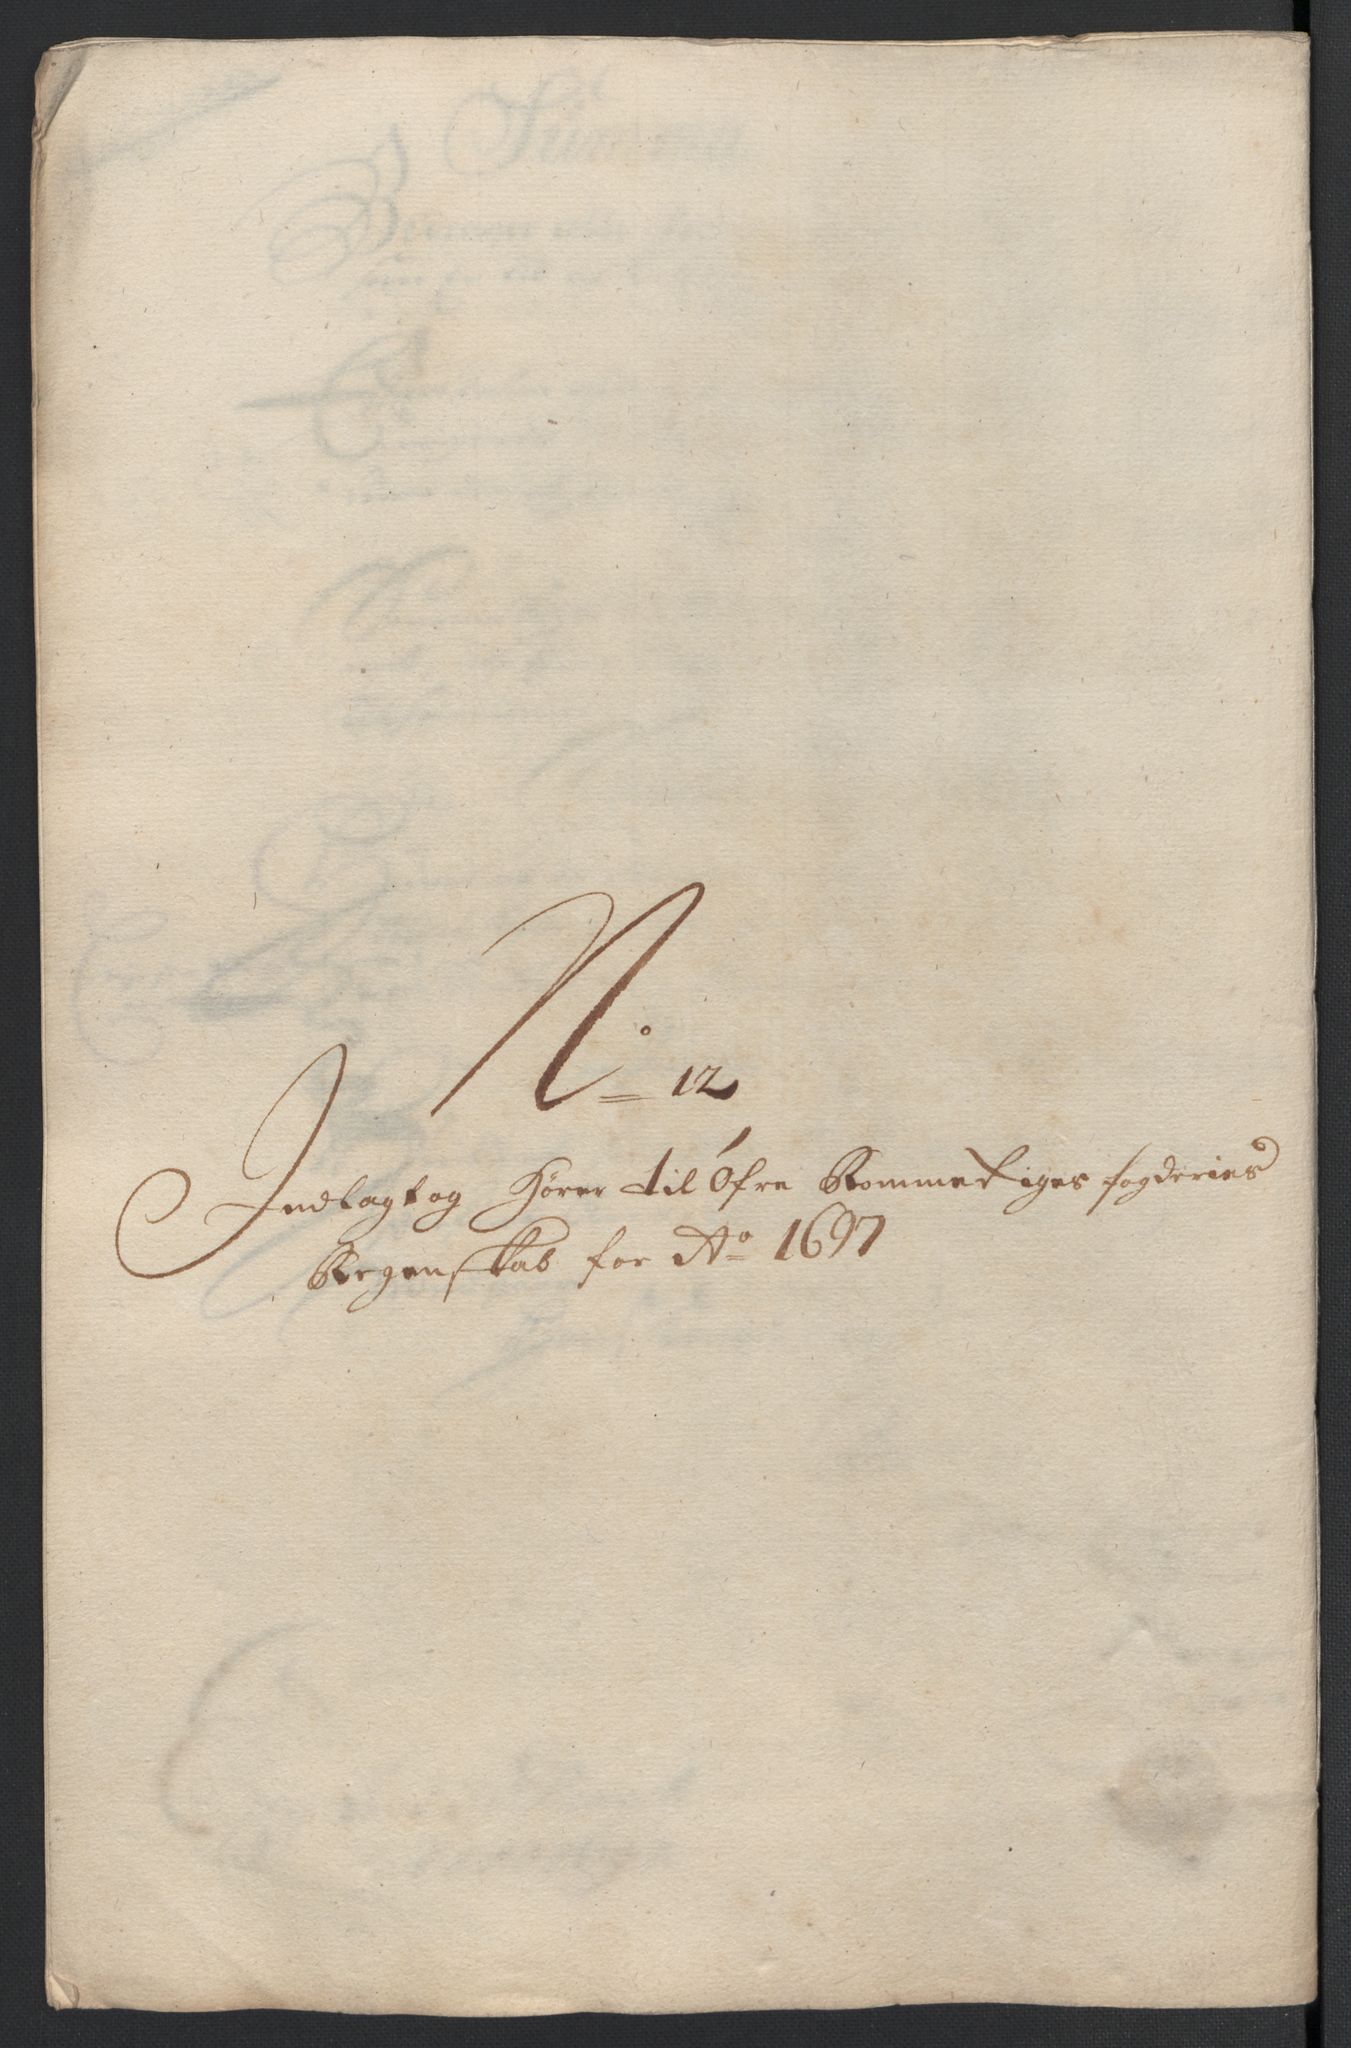 No 12
Indlagt og hører til Øfre Rommeriges fogderies
Regenskab for Ao 1697